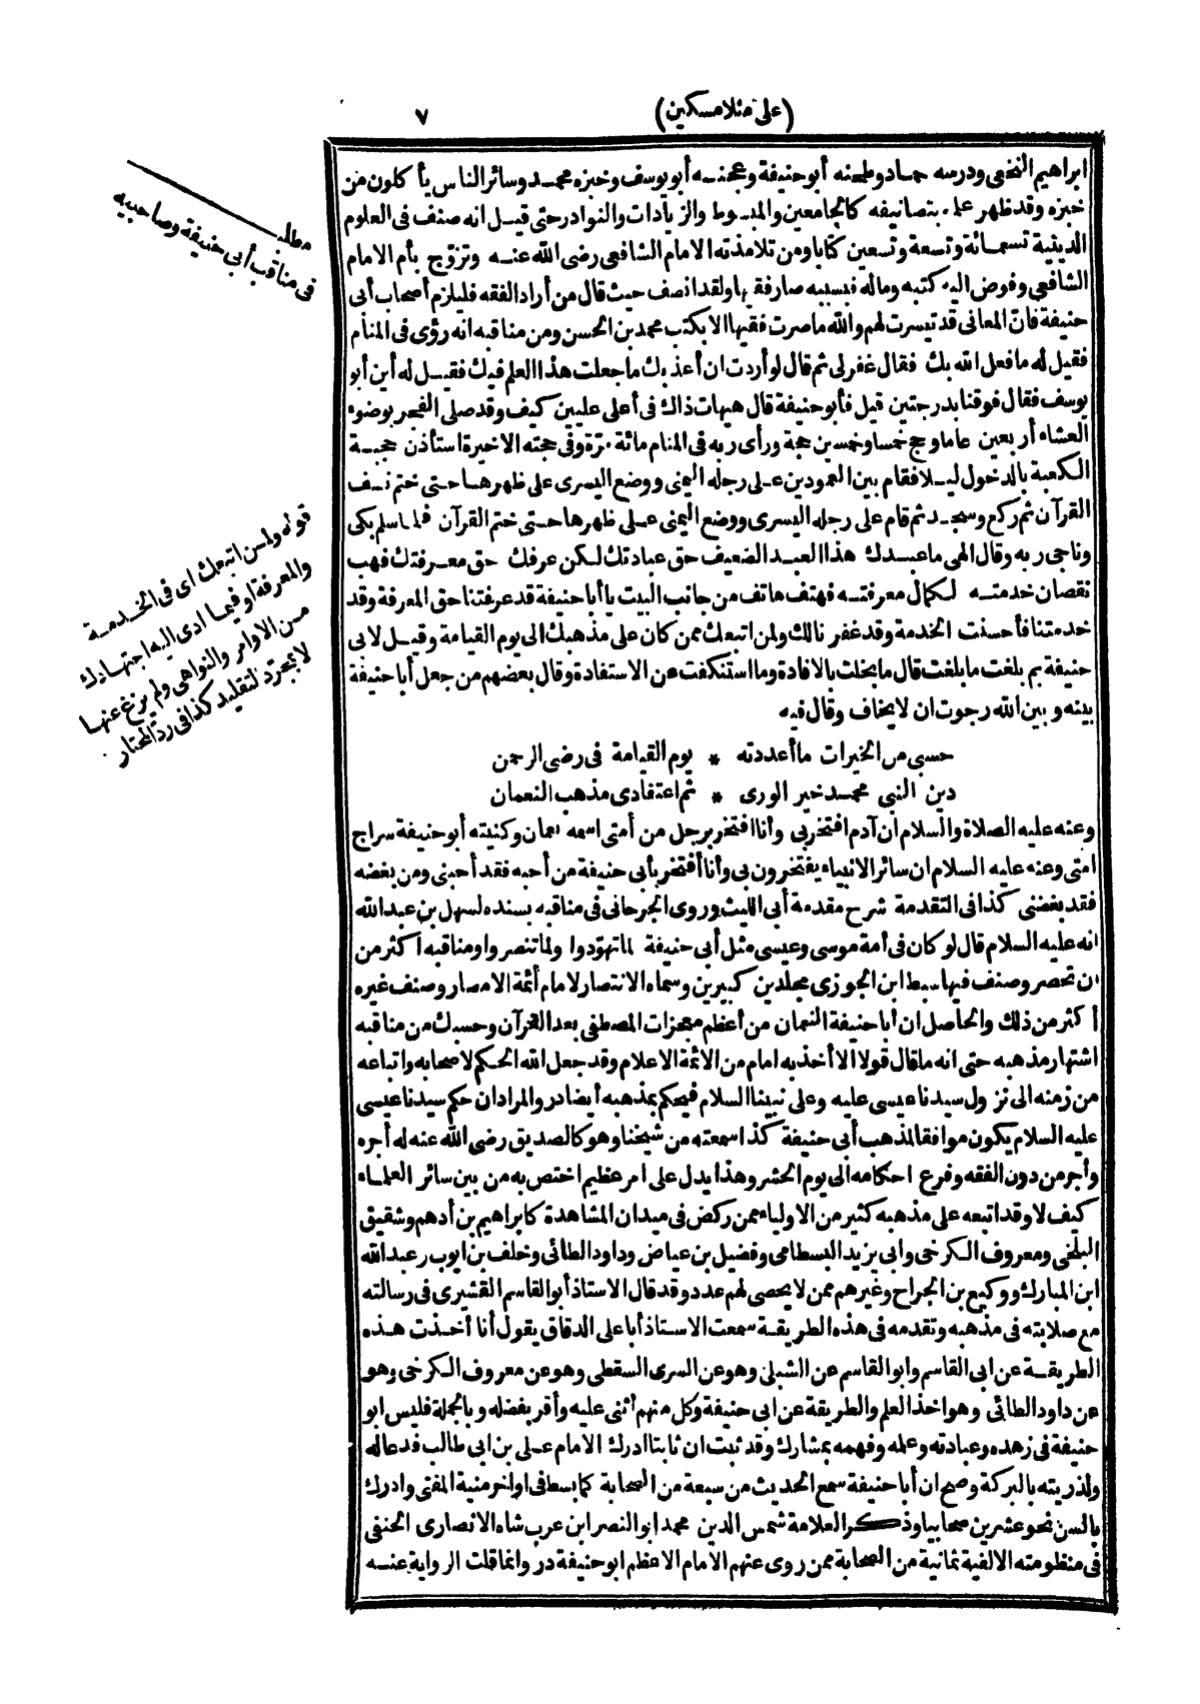 (على منلا مسكين) ٧
ابراهيم النخعى ودرسه حماد وطحنه أبو حنيفة وعجنه أبو يوسف وخبزه محمد وسائر الناس يأكلون من
خبزه وقد ظهر علمه بتصانيفه كالجامعين والمبسوط والزيادات والنوادر حتى قيل انه صنف فى العلوم
الدينية تسمائة وتسعة وتسعين كتابا ومن تلامذته الامام الشافعى رضى الله عنه وتزوّج بأم الامام
الشافعى وفوض اليه كتبه وماله فبسببه صار فقيها ولقد انصف حيث قال من أراد الفقه فليلزم أصحاب أبى
حنيفة فانّ المعانى قد تيسرت لهم والله ما صرت فقيها الا بكتب محمد بن الحسن ومن مناقبه انه رؤى فى المنام
فقيل له ما فعل الله بك فقال غفر لى ثم قال لو أردت ان أعذبك ما جعلت هذا العلم فيك فقيل له أين أبو
يوسف فقال فوقنا بدرجتين قيل فأبو حنيفة قال هيهات ذاك فى أعلى عليين كيف وقد صلى الفجر بوضوء
العشاء أربعين عاما وحج خمسا وخمسين حجة ورأى ربه فى المنام مائة مرة وفى حجته الاخيرة استأذن حجبة
الكعبة بالدخول ليلا فقام بين العمودين على رجله اليمنى ووضع اليسرى على ظهرها حتى ختم نصف
القرآن ثم ركع وسجد ثم قام على رجله اليسرى ووضع اليمنى على ظهرها حتى ختم القرآن فلما سلم بكى
وناجى ربه وقال الهى ما عبدك هذا العبد الضعيف حق عبادتك لكن عرفك حق معرفتك فهب
نقصان خدمته لكمال معرفته فهتف هاتف من جانب البيت يا أبا حنيفة قد عرفتنا حق المعرفة وقد
خدمتنا فأحسنت الخدمة وقد غفرنا لك ولمن اتبعك ممن كان على مذهبك الى يوم القيامة وقيل لابى
حنيفة بم بلغت ما بلغت قال ما بخلت بالافادة وما استنكفت عن الاستفادة وقال بعضهم من جعل أبا حنيفة
بينه وبين الله رجوت ان لا يخاف وقال فيه
حسبى من الخيرات ما أعددته * يوم القيامة فى رضى الرحمن
دين النبى محمد خير الورى * ثم اعتقادى مذهب النعمان
وعنه عليه الصلاة والسلام ان آدم افتخر بى وأنا افتخر برجل من أمتى اسمه نعمان وكنيته أبو حنيفة سراج
امتى وعنه عليه السلام ان سائر الانبياء يفتخرون بى وأنا أفتخر بأبى حنيفة من أحبه فقد أحبنى ومن بغضه
فقد بغضنى كذا فى التقدمة شرح مقدمة أبى الليث وروى الجرجانى فى مناقبه بسنده لسهل بن عبد الله
انه عليه السلام قال لو كان فى أمة موسى وعيسى مثل أبى حنيفة لما تهوّدوا ولما تنصروا ومناقبه اكثر من
ان تحصر وصنف فيها سبط ابن الجوزى مجلدين كبيرين وسماه الانتصار لامام أئمة الامصار وصنف غيره
أكثر من ذلك والحاصل ان أبا حنيفة النعمان من أعظم معجزات المصطفى بعد القرآن وحسبك من مناقبه
اشتهار مذهبه حتى انه ما قال قولا الا أخذ به امام من الائمة الاعلام وقد جعل الله الحكم لاصحابه واتباعه
من زمنه الى نزول سيدنا عيسى عليه وعلى نبينا السلام فيحكم بمذهبه أيضا در والمراد ان حكم سيدنا عيسى
عليه السلام يكون موافقا لمذهب أبى حنيفة كذا سمعته من شيخنا وهو كالصديق رضى الله عنه له أجره
وأجر من دون الفقه وفرع احكامه الى يوم الحشر وهذا يدل على امر عظيم اختص به من بين سائر العلماء
كيف لا وقد اتبعه على مذهبه كثير من الاولياء ممن ركض فى ميدان المشاهدة كابراهيم بن أدهم وشقيق
البلخى ومعروف الكرخى وابى يزيد البسطامى وفضيل بن عياض وداود الطائى وخلف بن ايوب وعبد الله
ابن المبارك ووكيع بن الجراح وغيرهم ممن لا يحصى لهم عدد وقد قال الاستاذ أبو القاسم القشيرى فى رسالته
مع صلابته فى مذهبه وتقدمه فى هذه الطريقة سمعت الاستاذ أبا على الدقاق يقول أنا أخذت هذه
الطريقة عن ابى القاسم وابو القاسم عن الشبلى وهو عن السرى السقطى وهو عن معروف الكرخى وهو
عن داود الطائى وهو اخذ العلم والطريقة عن ابى حنيفة وكل منهم أثنى عليه وأقر بفضله وبالجملة فليس ابو
حنيفة فى زهده وعبادته وعلمه وفهمه بمشارك وقد ثبت ان ثابتا ادرك الامام على بن ابى طالب فدعا له
ولذريته بالبركة وصح ان أبا حنيفة سمع الحديث من سبعة من الصحابة كما بسط فى اواخر منية المفتى وادرك
بالسن نحو عشرين صحابيا وذكر العلامة شمس الدين محمد ابو النصر ابن عرب شاه الانصارى الحنفى
فى منظومته الالفية ثمانية من الصحابة ممن روى عنهم الامام الاعظم ابو حنيفة در وانما قلت الرواية عنه
مطلب
فى مناقب أبى حنيفة وصاحبيه
قوله ولمن اتبعك اى فى الخدمة
والمعرفة او فيما ادى اليه اجتهادك
من الاوامر والنواهى ولم يزغ عنها
لا بمجرد التقليد كذا فى رد المحتار